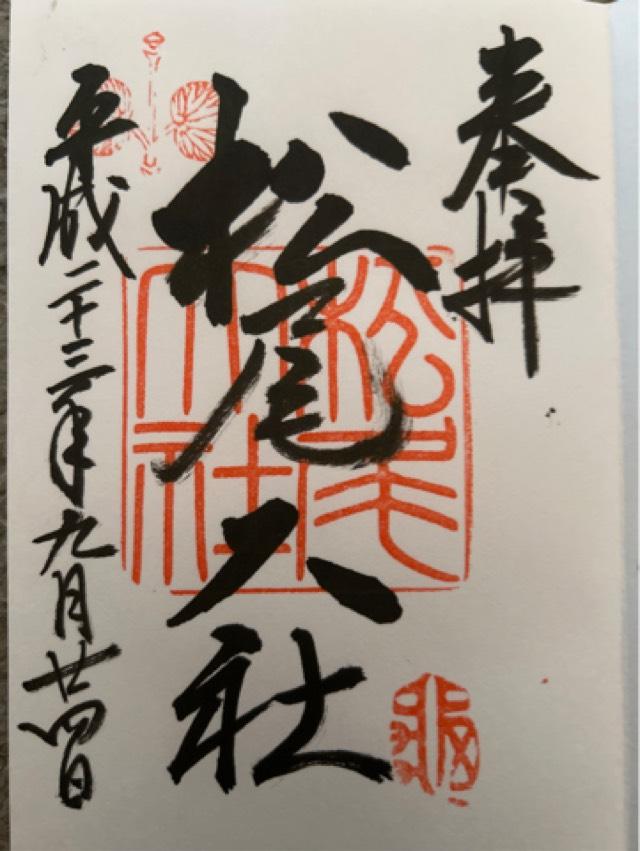 奉拝
松尾大社
松尾大社
平成二十三年九月廿四日